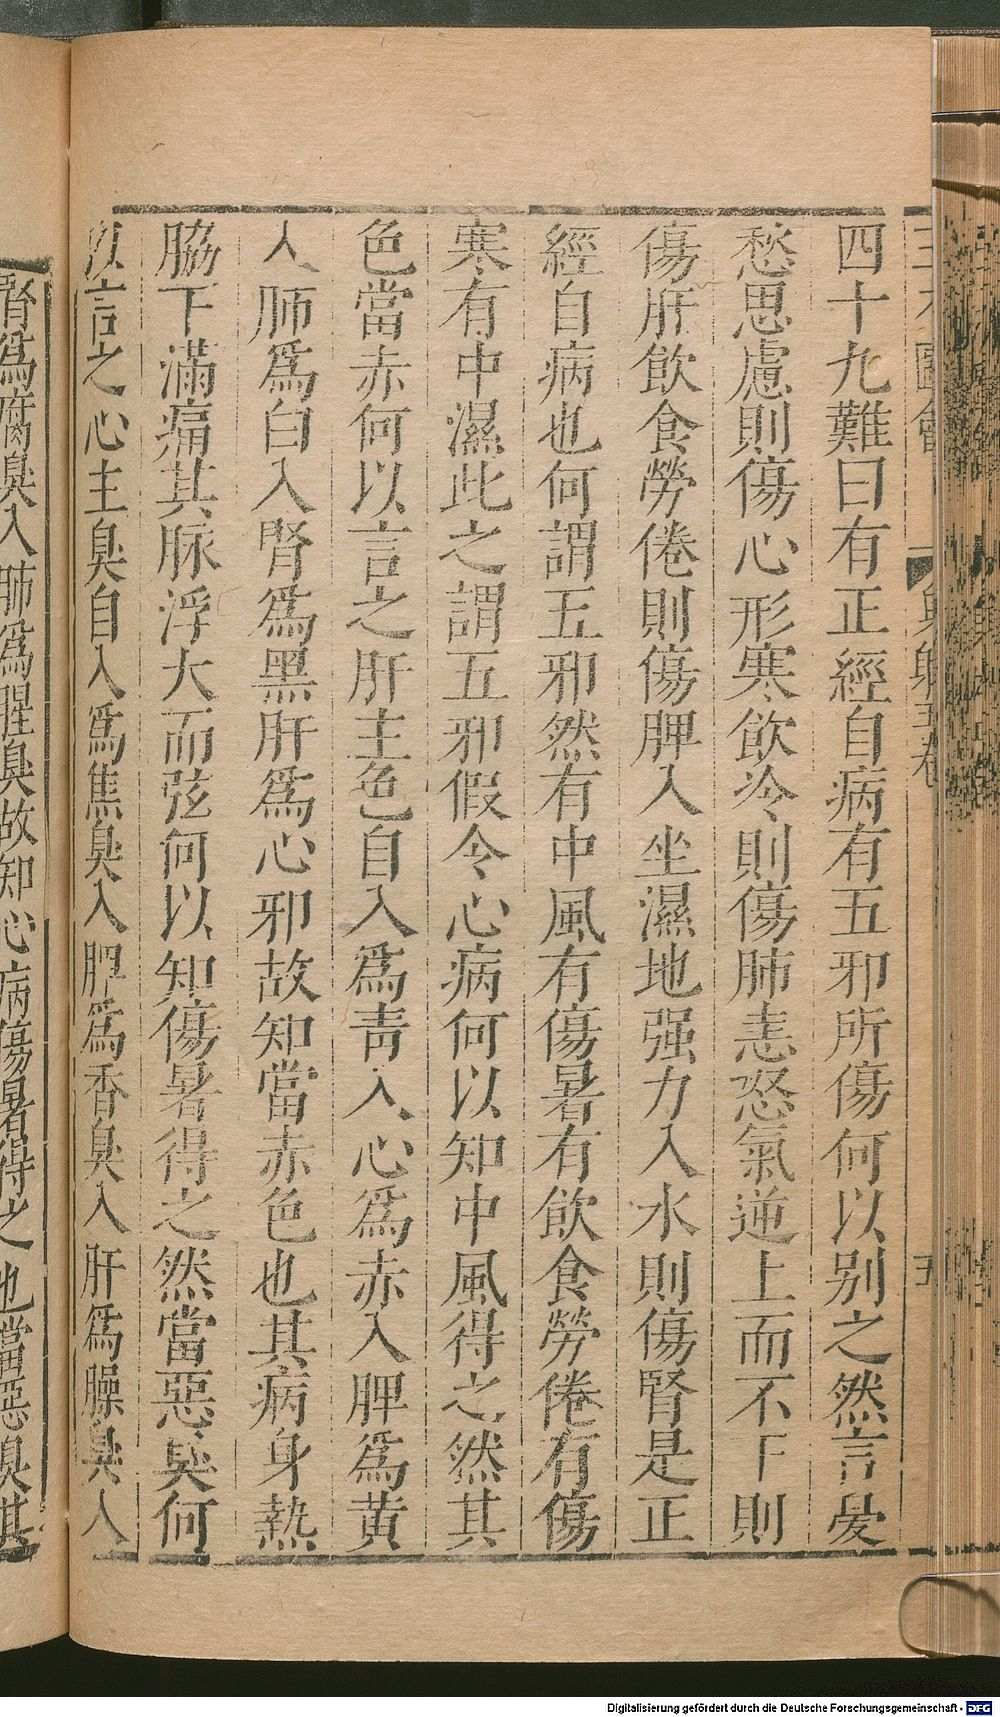 四十九難曰有正經自病有五邪所傷何以别之然言憂
愁思慮則傷心形寒飲冷則傷肺恚怒氣逆上而不下則
傷肝飲食勞倦則傷脾入坐濕地强力入水則傷腎是正
經自病也何謂五邪然有中風有傷暑有飲食勞倦有傷
寒有中濕此之謂五邪假令心病何以知中風得之然其
色當赤何以言之肝主色自入爲青入心爲赤入脾爲黄
入肺爲白入腎爲黑肝爲心邪故知當赤色也其病身熱
脇下滿痛其脉浮大而弦何以知傷暑得之然當惡臭何
以言之心主臭自入爲焦臭入脾爲香臭入肝爲臊臭入
腎爲腐臭入肺爲腥臭故知心病傷暑得之也當惡臭其
Digitalisierung gefördert durch die Deutsche Forschungsgemeinschaft - DFG